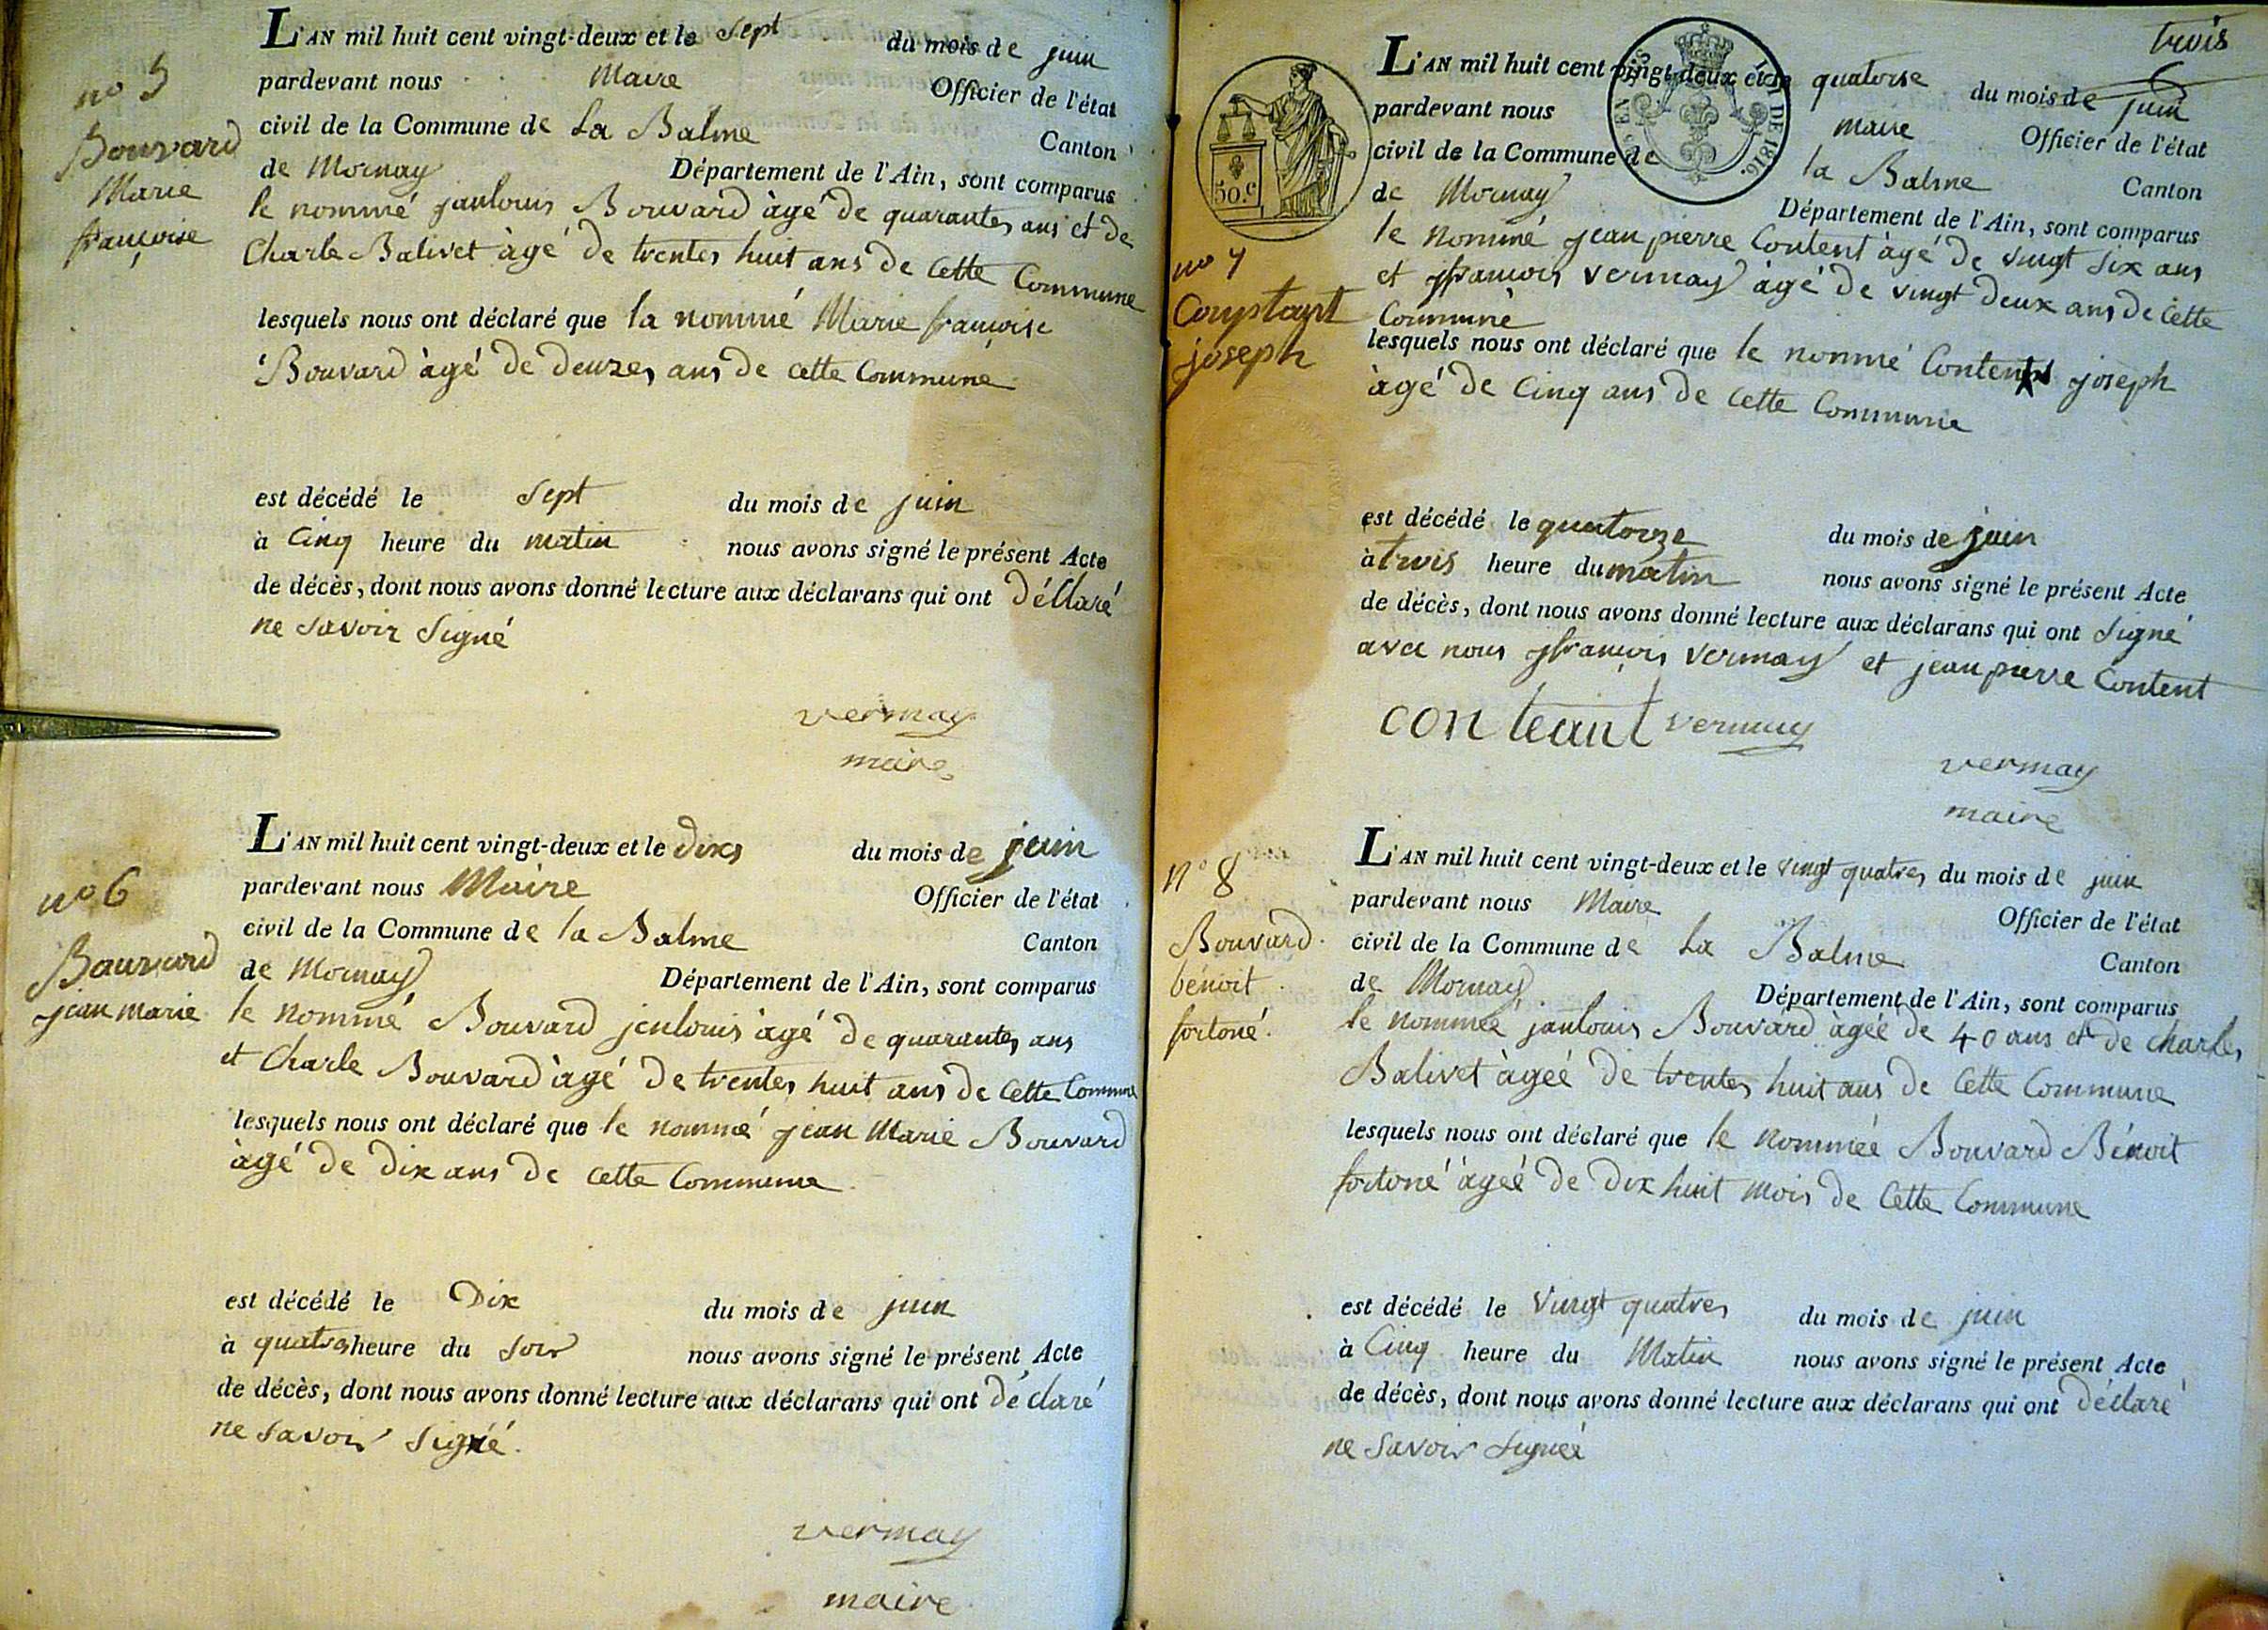 no 5
Bouvard
Marie
françoise
L'AN mil huit cent vingt-deux et le sept du mois de juin
pardevant nous Maire Officier de l'état
civil de la Commune de La Balme Canton
de Mornay Département de l'Ain, sont comparus
le nommé janlouis Bouvard àgé de quarantes ans et de
Charle Balivet àgé de trentes huit ans de cette Commune
lesquels nous ont déclaré que la nommé Marie françoise
Bouvard àgé de deuzes ans de cette Commune
est décédé le sept du mois de juin
à Cinq heure du matin nous avons signé le présent Acte
de décès, dont nous avons donné lecture aux déclarans qui ont Déclaré
ne savoir Signé
vermay
maire
no 6
Bauvard
jean marie
L'AN mil huit cent vingt-deux et le Dixs du mois de juin
pardevant nous Maire Officier de l'état
civil de la Commune de la Balme Canton
de Mornay Département de l'Ain, sont comparus
le nommé Bouvard jenlouis àgé de quarantes ans
et Charle Bouvard àgé de trentes huit ans de cette Commune
lesquels nous ont déclaré que le nommé jean Marie Bouvard
àgé de dix ans de cette Commune
est décédé le Dix du mois de juin
à quatres heure du soir nous avons signé le présent Acte
de décès, dont nous avons donné lecture aux déclarans qui ont déclaré
ne savoir signé.
vermay
maire
trois
50.c
DE 1816.
L'AN mil huit cent vingt-deux et le quatorse du mois de juin
pardevant nous maire Officier de l'état
civil de la Commune de la Balme Canton
de Mornay Département de l'Ain, sont comparus
le nommé jean pierre Content àgé de vingt six ans
et françois vermay àgé de vingt deux ans de cette
Commune
no 7
joseph
lesquels nous ont déclaré que le nommé joseph
àgé de Cinq ans de cette Commune
est décédé le quatorze du mois de juin
à trois heure du matin nous avons signé le présent Acte
de décès, dont nous avons donné lecture aux déclarans qui ont signé
avec nous françois vermay et jean pierre Content
conteant vermay
vermay
maire
n° 8
Bouvard
bénoit
fortoné.
L'AN mil huit cent vingt-deux et le vingt quatres du mois de juin
pardevant nous Maire Officier de l'état
civil de la Commune de La Balme Canton
de Mornay Département de l'Ain, sont comparus
le nommée janlouis Bouvard àgéé de 40 ans et de charles
Balivet àgéé de trentes huit ans de cette Commune
lesquels nous ont déclaré que le nommée Bouvard Bénoit
fortoné àgéé de dix huit mois de cette Commune
est décédé le vingt quatres du mois de juin
à Cinq heure du Matin nous avons signé le présent Acte
de décès, dont nous avons donné lecture aux déclarans qui ont déclaré
ne savoir signéé